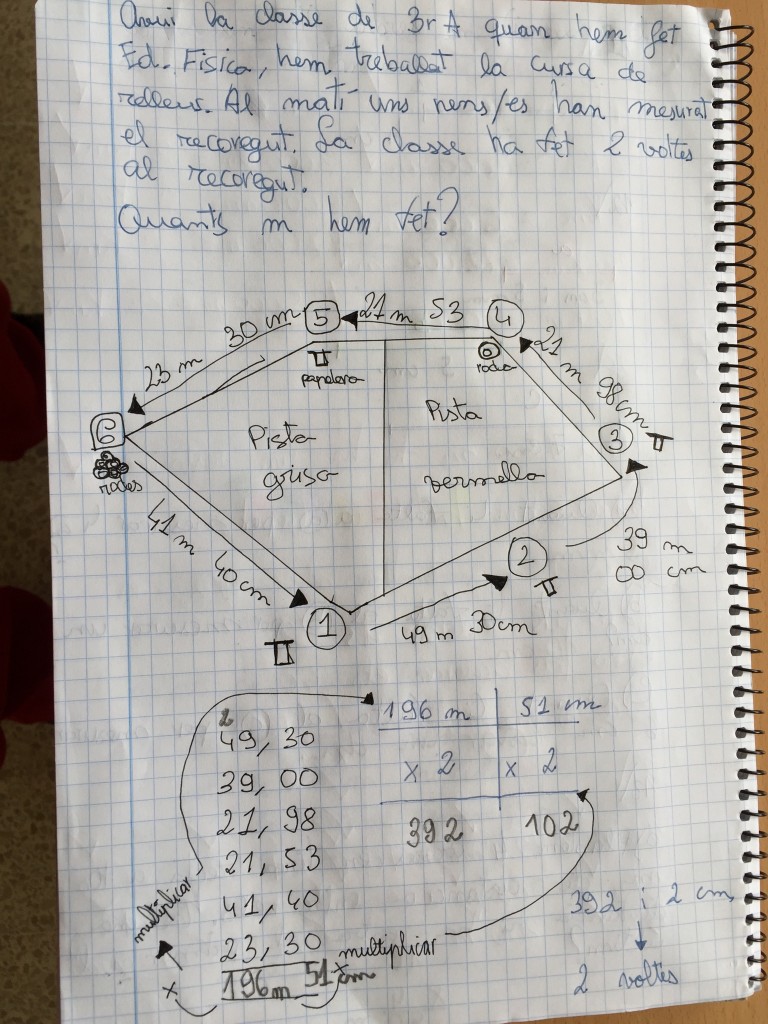 Avui la classe de 3r A quan hem fet
Ed. Física, hem treballat la cursa de
relleus. Al matí uns nens/es han mesurat
el recoregut. La classe ha fet 2 voltes
al recoregut.
Quants m hem fet?
5
21 m 53
4
23 m 30 cm
papelera
roda
21 m 98cm
6
Pista
grisa
Pista
vermella
3
rodes
41 m 40 cm
2
39 m
00 cm
1
49 m 30cm
196 m 51 cm
x 2 x 2
392 102
2
49, 30
39, 00
21, 98
21, 53
41, 40
23, 30
196m 51cm
multiplicar
multiplicar
x
x
392 i 2 cm
2 voltes